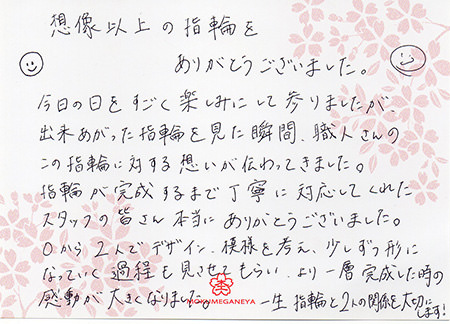 想像以上の指輪を
ありがとうございました。
今日の日をすごく楽しみにして参りましたが、
出来あがった指輪を見た瞬間、職人さんの
この指輪に対する想いが伝わってきました。
指輪が完成するまで丁寧に対応してくれた
スタッフの皆さん本当にありがとうございました。
0から2人でデザイン、模様を考え、少しずつ形に
なっていく過程も見させてもらい、より一層完成した時の
感動が大きくなりました。一生指輪と2人の関係を大切にします!
MOKUMEGANEYA